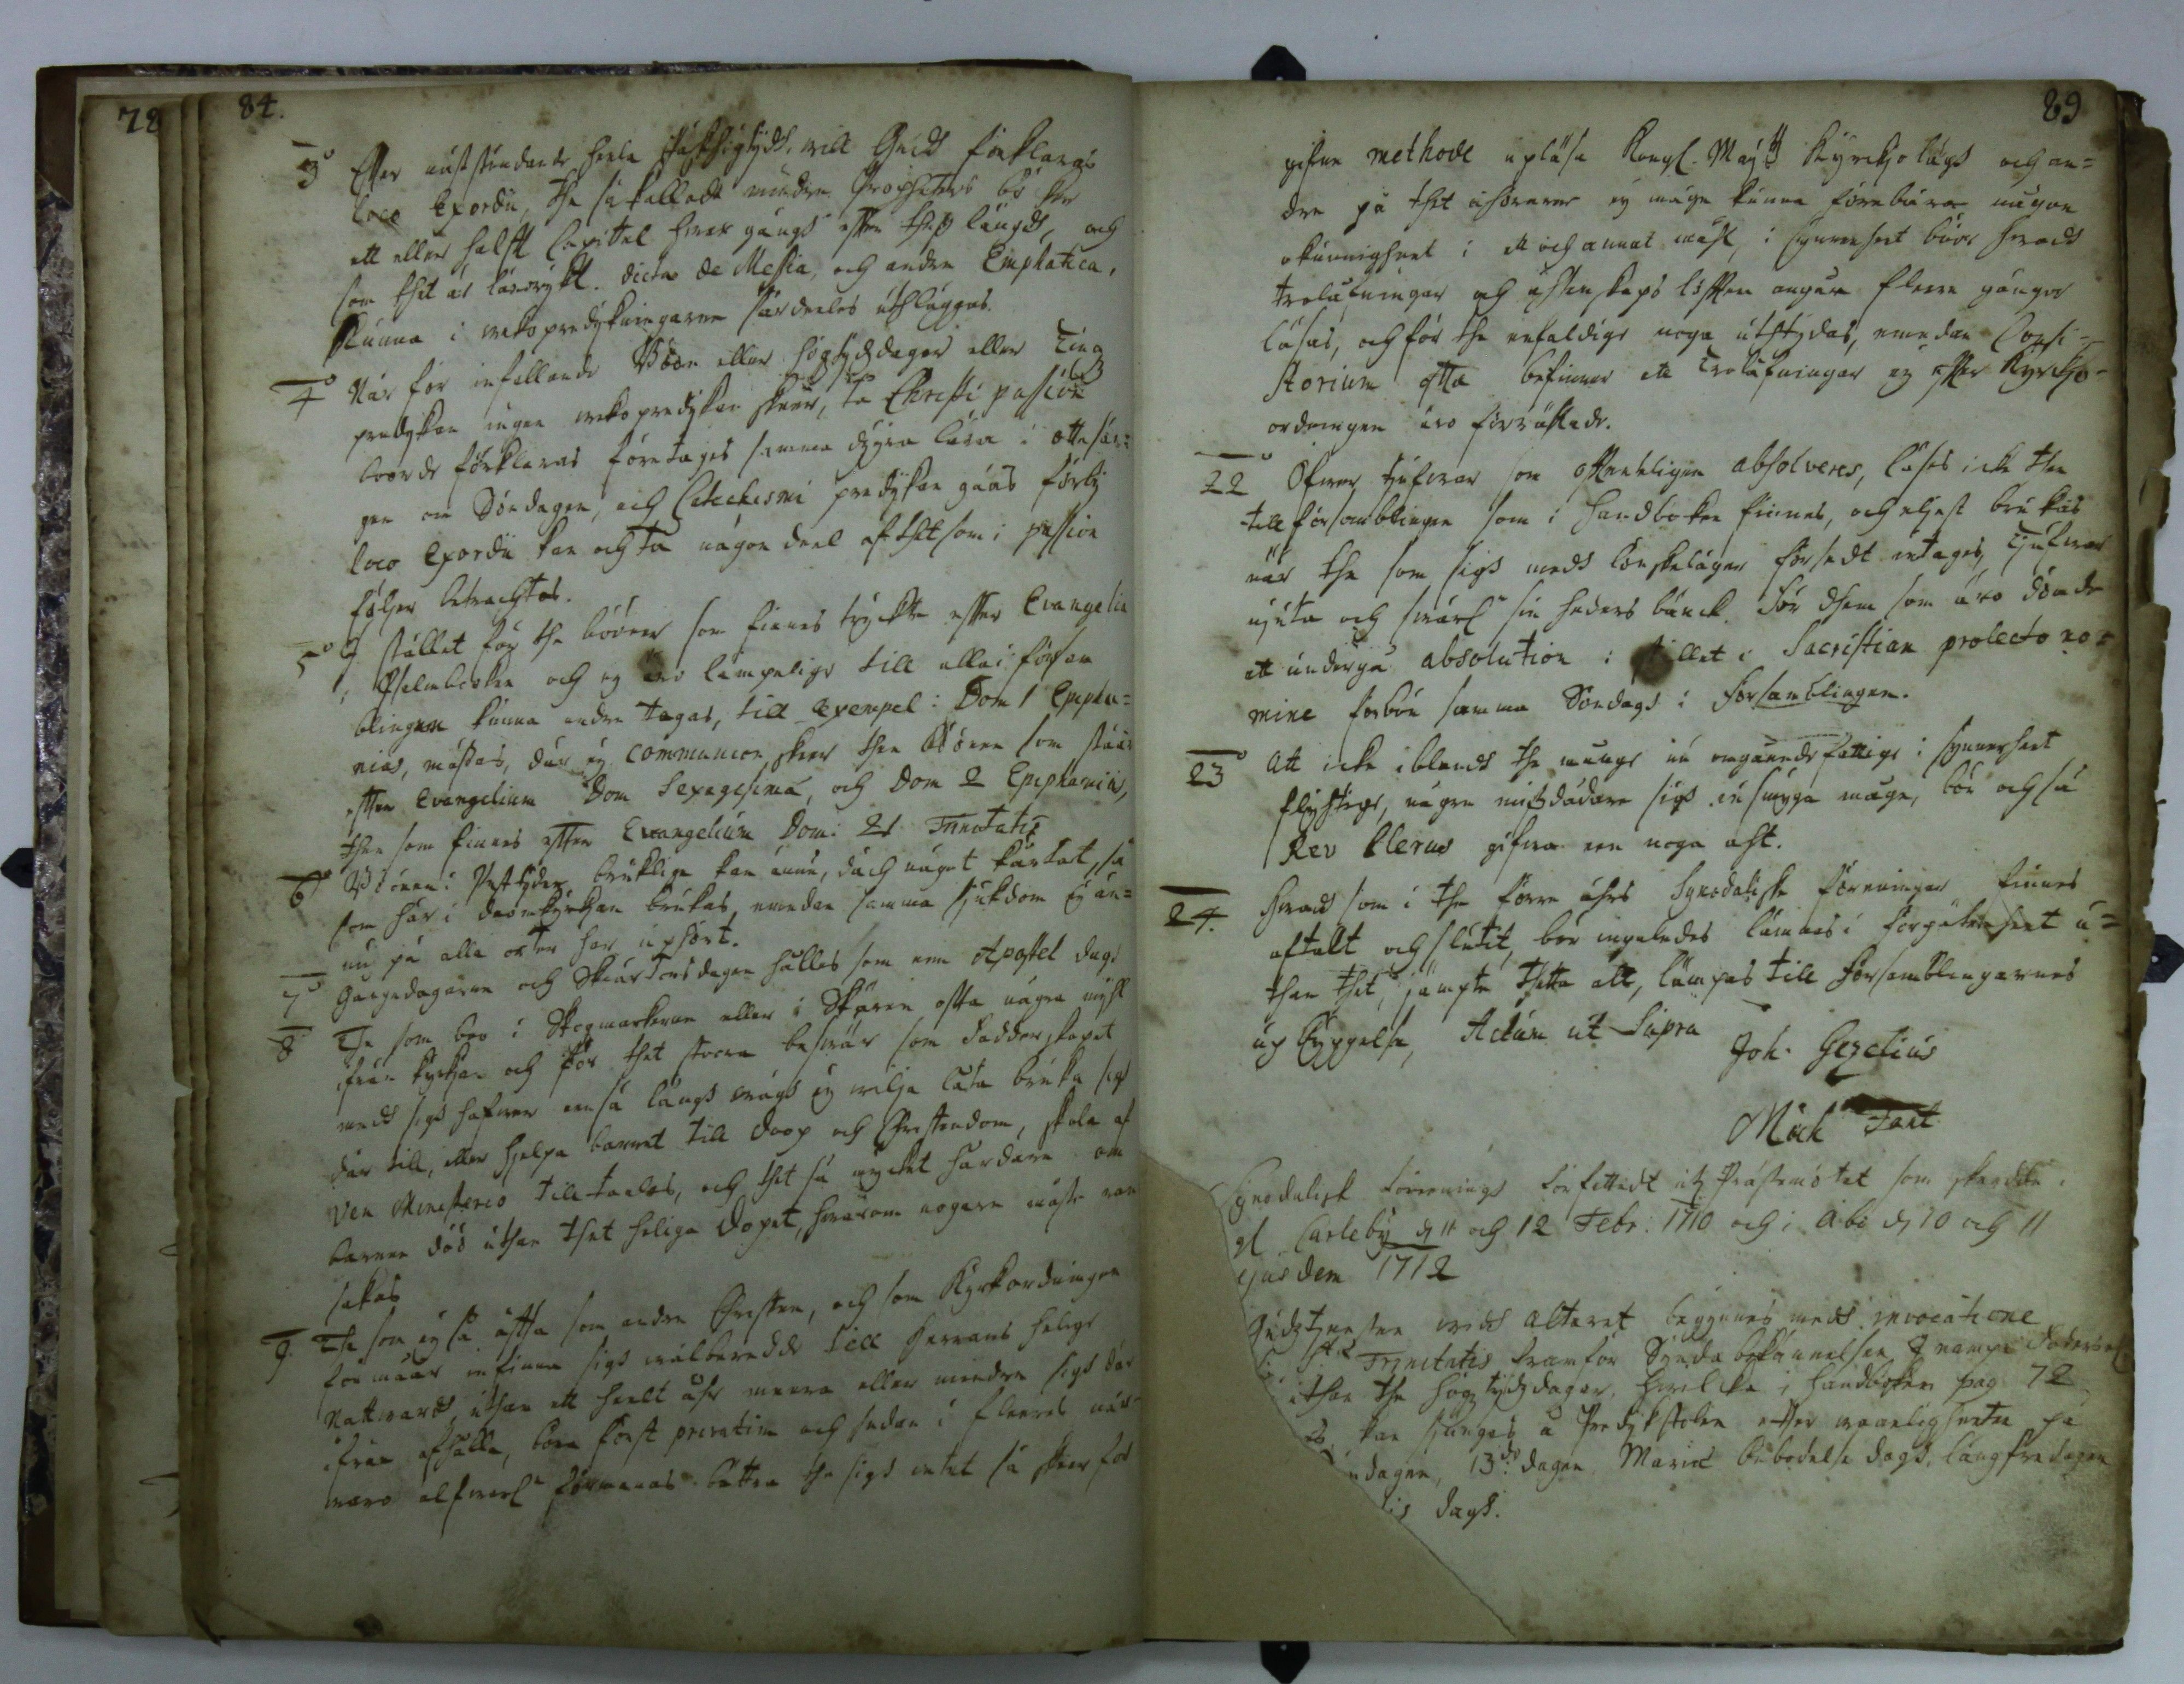 78
84.
3° Efter nuststundande heela Påskhögtydh, will Gud förklaras
loco Exordii, the så kallade mindre Propheters böcker
ett eller halfft Capitel hwar gång effter thess längd, och
som thet är lärorykt. dicta de Messia, och andra Emphatica,
kunna i wekopredykningarne särdeeles uthläggas.
4° När för infallande Böön eller högtydsdagar eller Ting
predykan ingen wekopredykan skeer, tå Christi passion
borde förklaras företages samma dyyra lära i ottesån-
gen om Söndagen, och Catechismi predykan gåås förby
loco Exordii kan och tå någon deel af thet som i passion
fölljer betrachtas.
5° I stället för the böner som finnes tryckte effter Evangelia
i Psalmboken och ey äro lämpelige till alla församb-
lingar kunna andra tagas, till Exempel: Dom 1 Epipha-
nias, måstas, där ey communion skeer then Bönen som ståår
effter Evangelium Dom Sexagesima, och Dom 2 Epiphanias,
then som finnes effter Evangelium Dom: 21 Trinitatis
6° Bönen i Pesttyder brukligen kan ännu, däch något kårtat, så
som här i doomkyrkan brukas, emedan samma siukdom ey än-
nu på alla orter har uphört.
7° Gångdagarne och Skiärtorsdagen hålles som een Apostel dag.
8 The som boo i Skogmarkerne eller i Skären offta några mijhl
ifrån kyrkan och för thet stoora beswär som fadderskapet
medh sigh hafwer een så lång wäg ey wilja låta bruka sigh
där till, eller hjelpa barnet till doop och Christendom, skola af
Ven Ministerio tilltaalas, och thet så mycket hårdare om
barnen döö uthan thet heliga dopet, hwarom nogare måste ran
sakas
9. The som ey så offta som andra Christne, och som Kyrkoordningen
förmåår infinna sigh wälberedde till Herrans helige
Nattward, uthan ett heelt åhr meera eller mindre sigh där
ifrån afhålla, böra först privatim och sedan i fleeres när-
waro alfwarl: förmanas. bättra the sigh intet så skeer för
89
gifne methode upläsa Kongl. Maytz Kyrckjo lagh och an-
dra på thet åhörarne ey måge kunna förebära någon
okunnigheet i ett och annat måhl, i synnerheet böör hwad
trolåfningar och ächtenskaps löfften angår fleere gånger
läsas, och för the enfaldige noga uthtydas, emedan Consi-
storium offta befinner att trolåfningar ey effter Kyrckjo-
ordningen äro förrättade.
22° Öfwer tjufwar som offentligen absolveres, läses icke then
till församblingen som i handboken finnes, och eljest brukas
när the som sigh medh lönskeläger försedt intages, tjufwar
njuta och swårl: sin heders bänck. För them som äro dömde
att undergå absolution i stillet i Sacristian prolecto no-
mine förbön samma Söndagh i församblingen.
23° Att icke iblandh the många nu omgåendefattige i synnerheet
flychtige, någre missdådare sigh insmyga måge, bör och så
Rev Clerus gifwa een noga acht.
24. Hwad som i the förre åhrs Synodaliske föreningar finnes
aftalt och slutit, bör ingaledes lämnas i förgätenheet u-
than thet, jämpte thetta alt, lämpas till församblingarnes
upbyggelse, Actum ut Supra
Joh. Gezelius
Mich Fant
Synodalisk föreenings författadt uti Prästemötet som skedde i
gl Carleby d 11 och 12 Febr: 1710 och i Åbo d 10 och 11
ejusdem 1712
Gudztjensten widh altaret begynnes medh invocatione
Trinitatis framför Syndabekännelsen I nampn Faders
ithan the högtydzdagar, hwilcka i handboken pag 72
kan siunges å Predykstolen effter waanligheeten på
dagen, 13de dagen Mariæ bebodelse dagh, långfredagen
dagh.